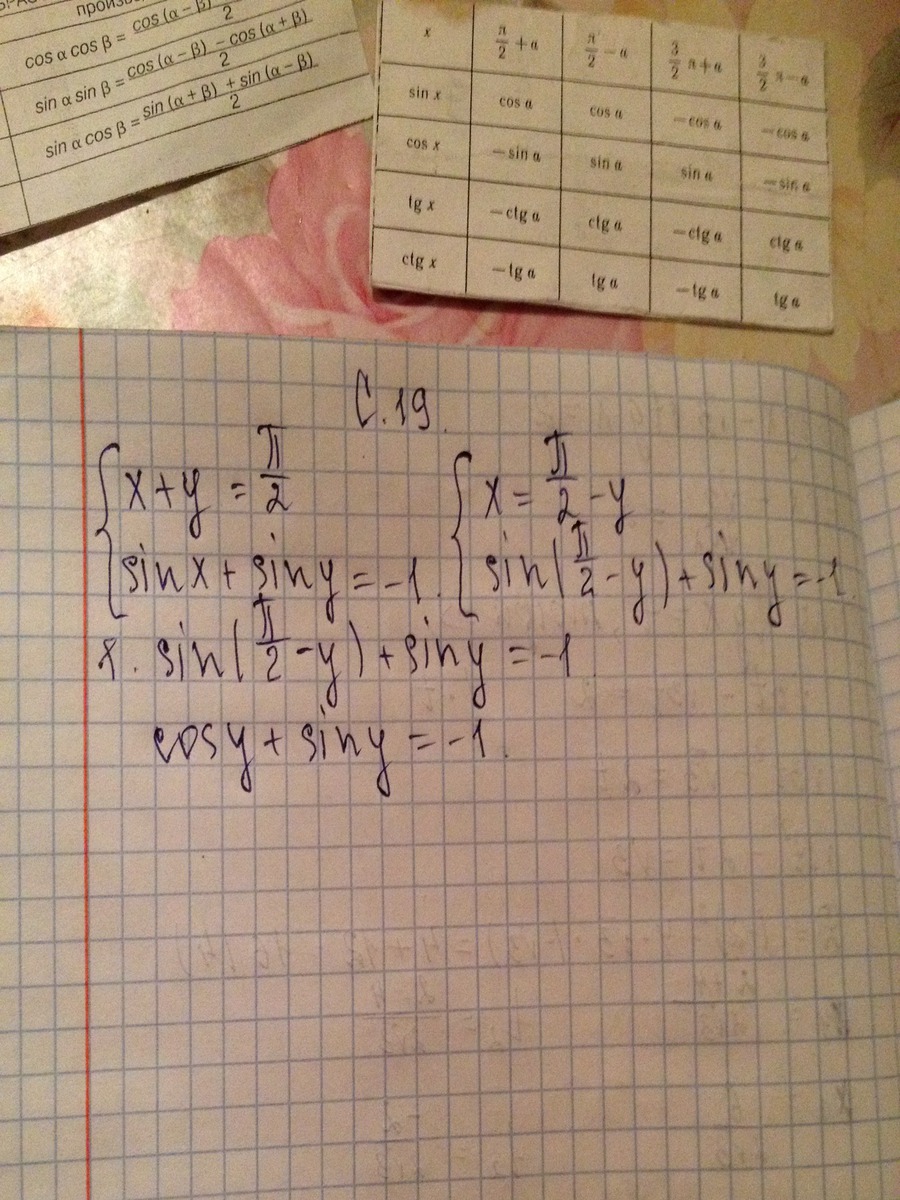 произв
cos α cos β = cos (α − β) / 2
sin α sin β = cos (α − β) − cos (α + β) / 2
sin α cos β = sin (α + β) + sin (α − β) / 2
x | π/2 + α | π/2 − α | 3/2 π + α | 3/2 π − α
sin x | cos α | cos α | −cos α | −cos α
cos x | −sin α | sin α | sin α | −sin α
tg x | −ctg α | ctg α | −ctg α | ctg α
ctg x | −tg α | tg α | −tg α | tg α
С.19.
{ x + y = π/2 { x = π/2 − y
sin x + sin y = −1. sin(π/2 − y) + sin y = −1.
sin(π/2 − y) + sin y = −1.
cos y + sin y = −1.